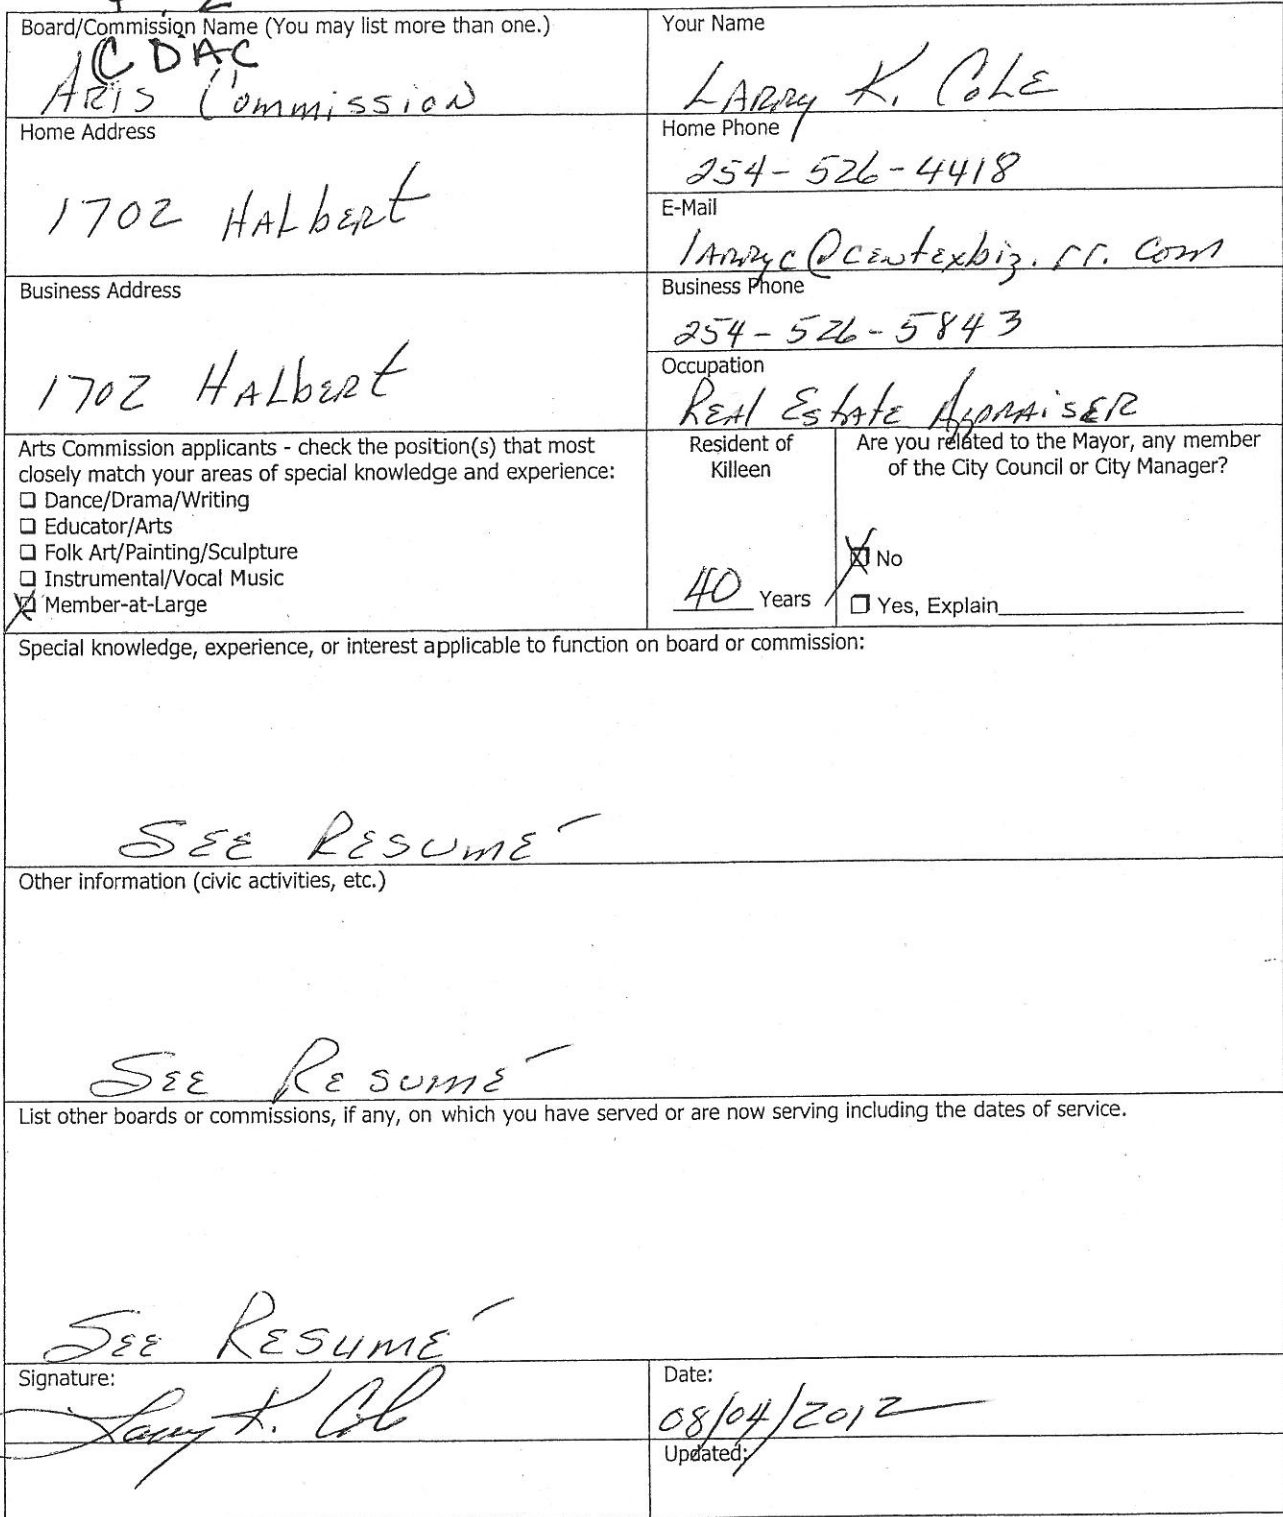 Board/Commission Name (You may list more than one.)
CDAC
Arts Commission
Your Name
Larry K. Cole
Home Address
1702 Halbert
Home Phone
254-526-4418
E-Mail
larryc@centexbiz.rr.com
Business Address
1702 Halbert
Business Phone
254-526-5843
Occupation
Real Estate Appraiser
Arts Commission applicants - check the position(s) that most
closely match your areas of special knowledge and experience:
❑ Dance/Drama/Writing
❑ Educator/Arts
❑ Folk Art/Painting/Sculpture
❑ Instrumental/Vocal Music
☒ Member-at-Large
Resident of
Killeen
40 Years
Are you related to the Mayor, any member
of the City Council or City Manager?
☒ No
❑ Yes, Explain
Special knowledge, experience, or interest applicable to function on board or commission:
See Resumé
Other information (civic activities, etc.)
See Resumé
List other boards or commissions, if any, on which you have served or are now serving including the dates of service.
See Resumé
Signature:
Larry K. Cole
Date:
08/04/2012
Updated: